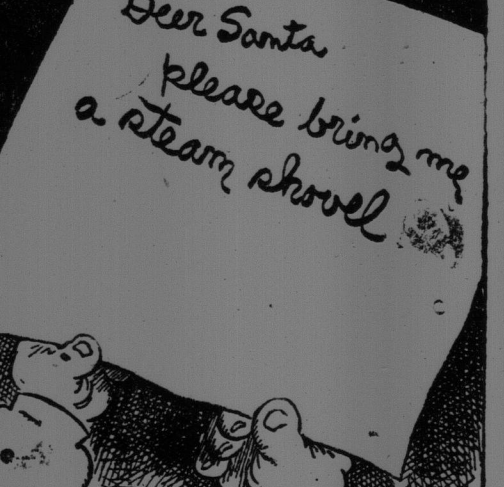 Deer Santa
please bring me
a steam shovel